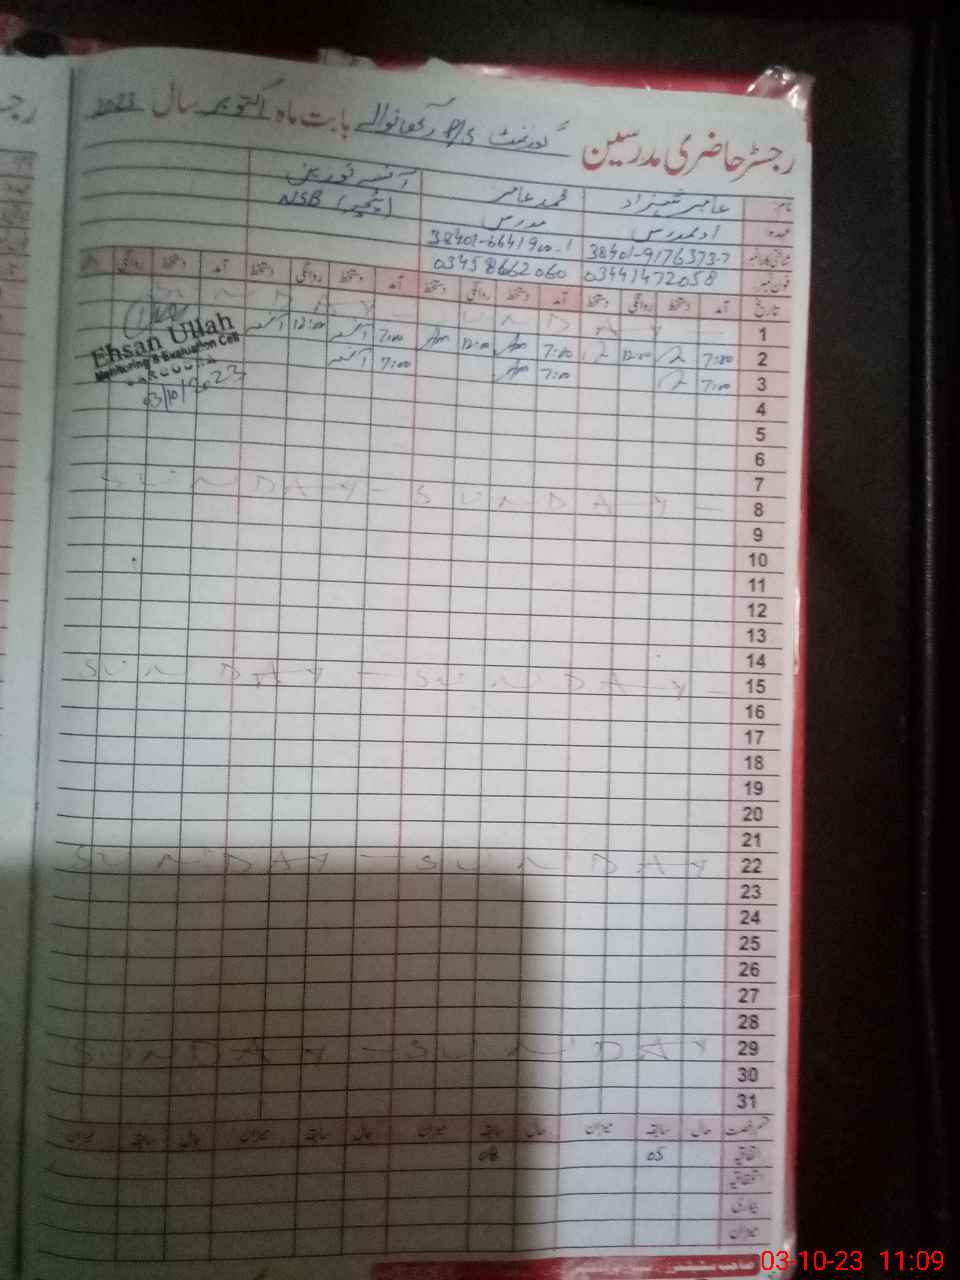 رجسٹر حاضری مدرسین گورنمنٹ P/S بابت ماہ اکتوبر سال 2023
نام: عامر شہزاد محمد عامر
عہدہ مدرس NSB
شناختی کارڈ نمبر 38401-9176373-7 38401-664190
فون نمبر 03441472058 03458662060
تاریخ آمد دستخط روانگی دستخط آمد دستخط روانگی دستخط آمد دستخط روانگی دستخط آمد دستخط روانگی
1 SUNDAY - SUNDAY -
2 7:00 12:00 7:00 12:00 7:00 12:00
3 7:00 7:00 7:00
Ehsan Ullah
Monitoring & Evaluation Cell
03/10/2023
4
5
6
7
8 SUNDAY - SUNDAY -
9
10
11
12
13
14
15 SUNDAY - SUNDAY -
16
17
18
19
20
21
22 SUNDAY - SUNDAY
23
24
25
26
27
28
29 SUNDAY - SUNDAY
30
31
حال سابقہ میزان حال سابقہ میزان حال سابقہ میزان حال سابقہ میزان
اتفاقیہ 05 08
استحقاقیہ
بیماری
میزان
03-10-23 11:09